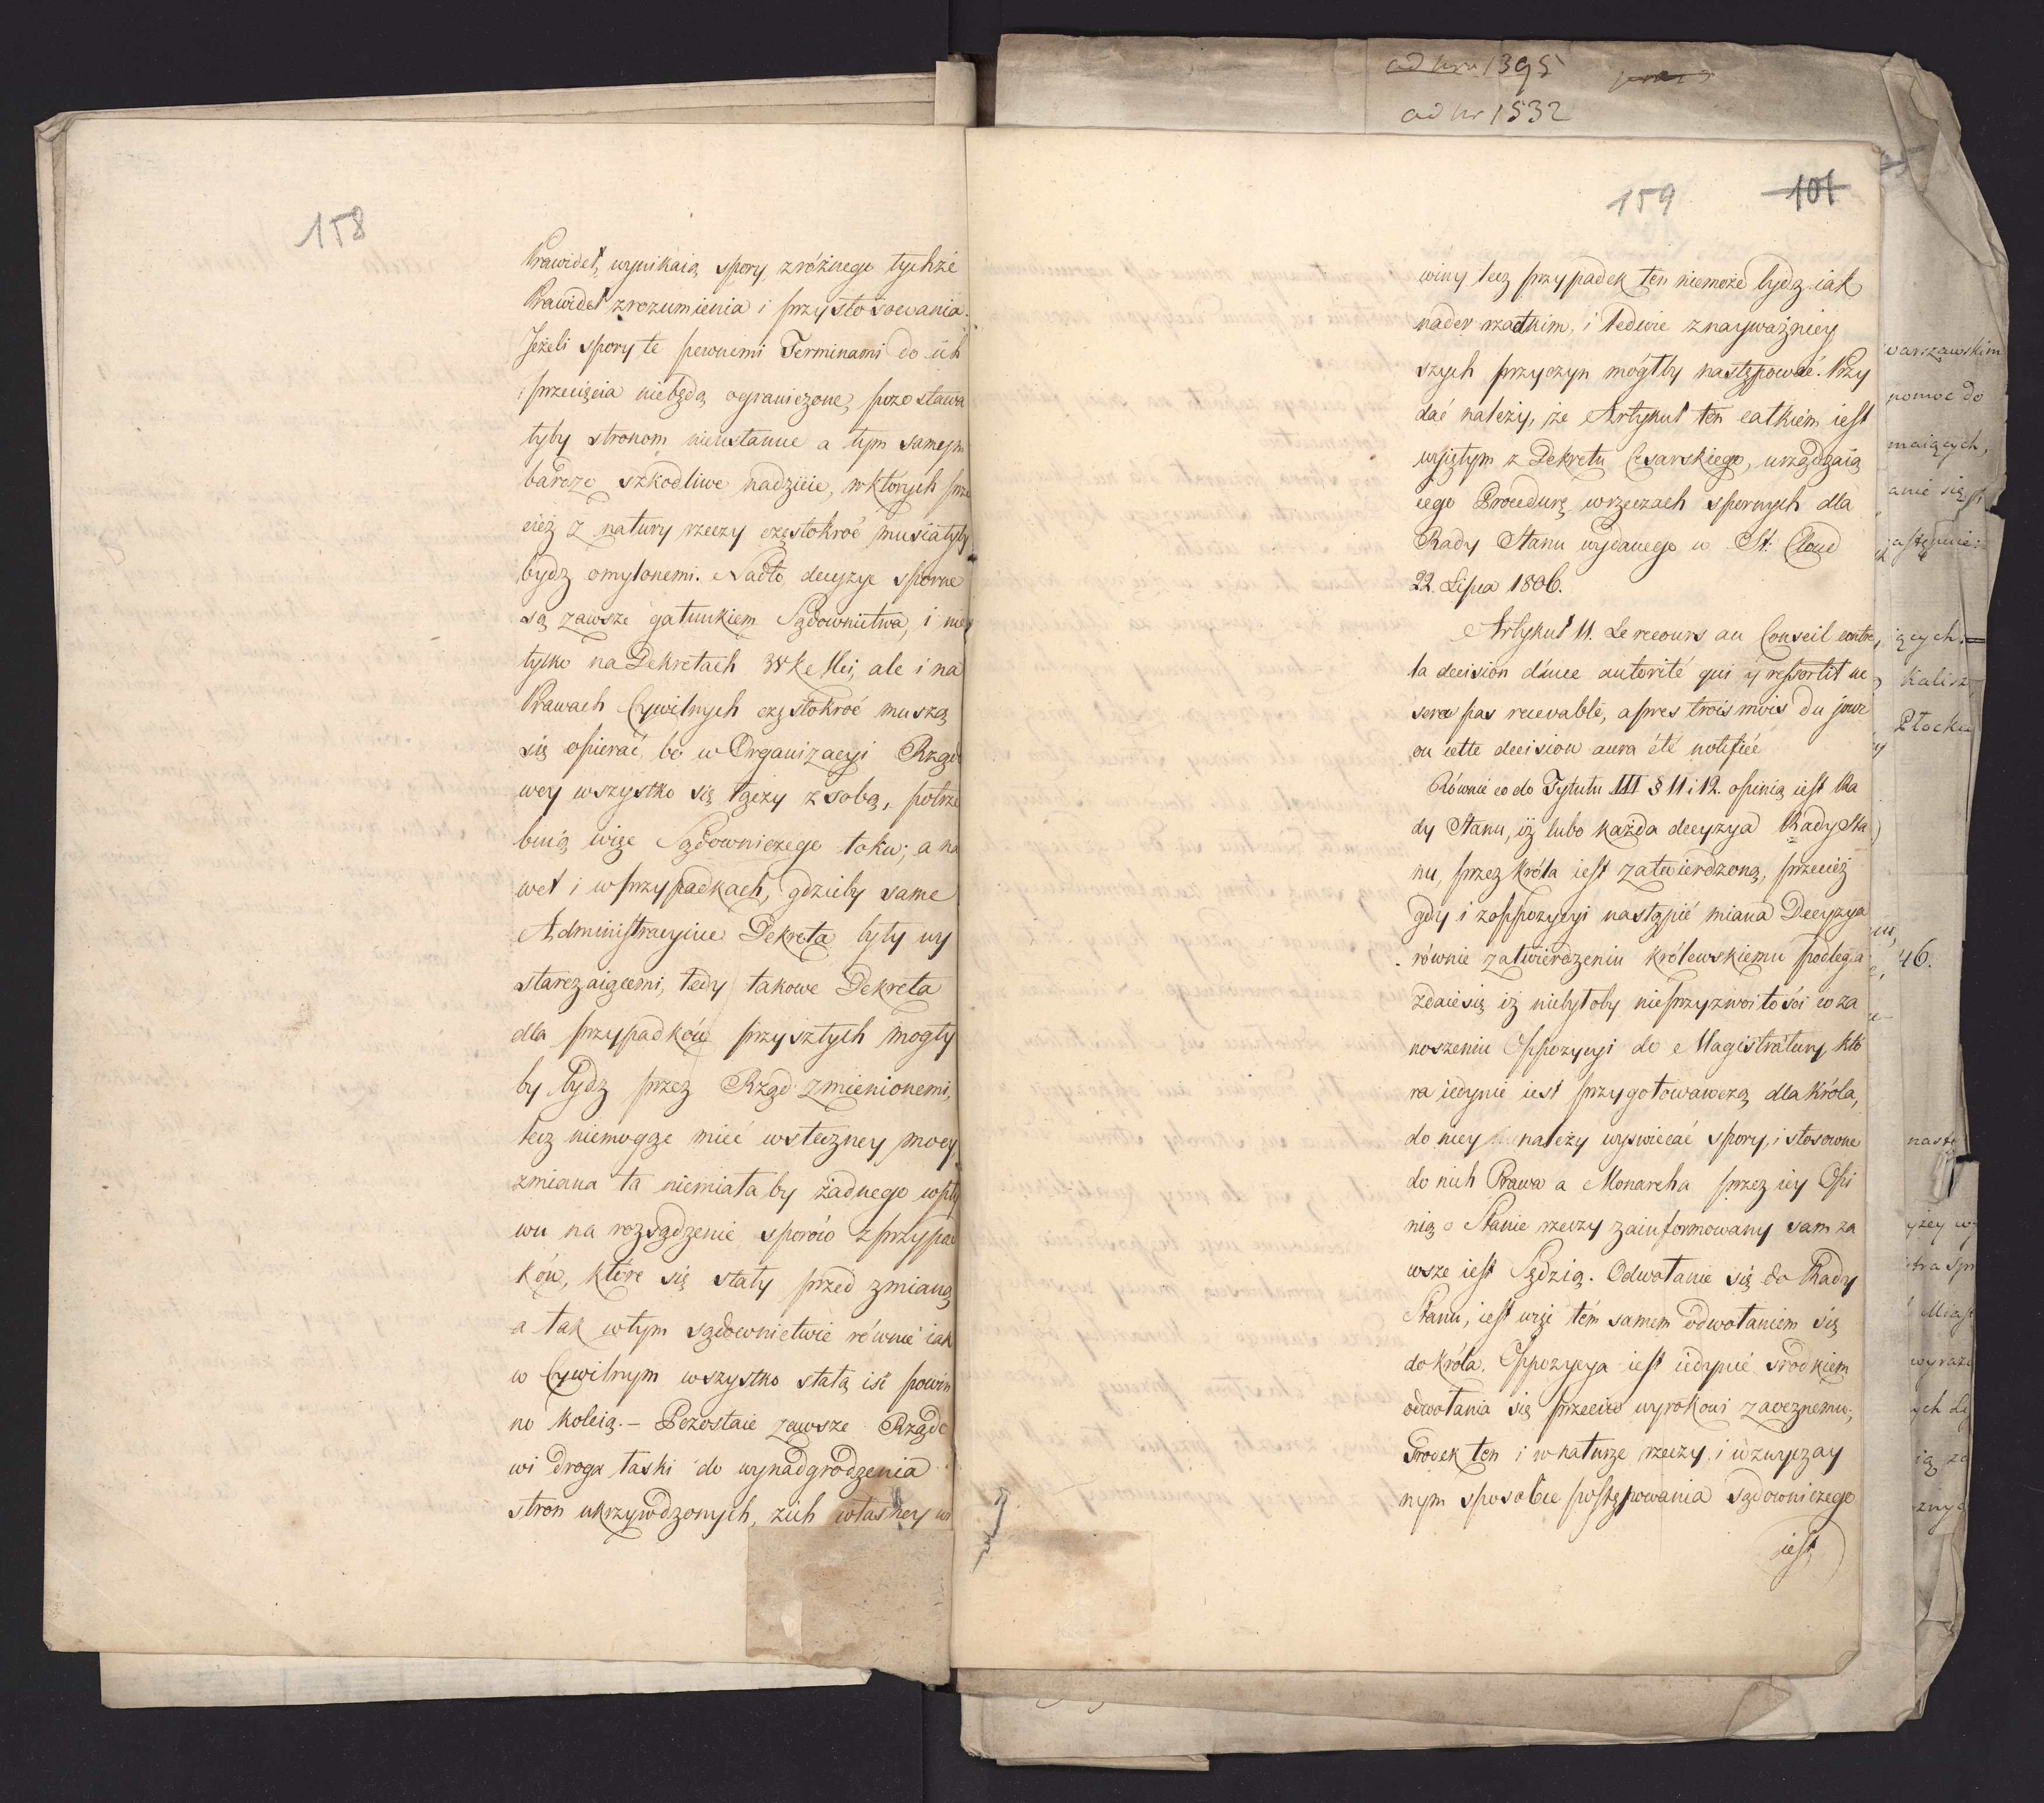 158
Prawideł, wynikaią spory z różnego tychże
Prawideł zrozumienia i przystosowania.
Jeżeli spory te pewnemi Terminami do ich
przecięcia niebędą ograniczone, pozostawa
łyby stronom nieustanne a tym samym
bardzo szkodliwe nadzieie, w których prze
cież z natury rzeczy częstokroć musiałyby
bydz omylonemi. Nadto, decyzye sporne
są zawsze gatunkiem Sądownictwa, i nie
tylko na Dekretach WKMci, ale i na
Prawach Cywilnych częstokroć muszą
się opierać, bo w Organizacyi Rządo
wey wszystko się łączy z sobą, potrze
buią więc Sądowniczego toku; a na
wet i w przypadkach, gdzieby same
Administracyine Dekreta były wy
starczaiącemi, tedy takowe Dekreta
dla przypadków przyszłych mogły
by bydz przez Rząd zmienionemi,
lecz niemogąc mieć wsteczney mocy
zmiana ta niemiałaby żadnego wpły
wu na rozsądzenie sporów z przypad
ków, które się stały przed zmianą
a tak w tym sądownictwie równie iak
w Cywilnym wszystko stałą iść powin
no koleią. – Pozostaie zawsze Rządo
wi droga łaski do wynadgrodzenia
stron ukrzywdzonych, z ich własney
ad nru 1395
ad Nr 1532
159 101
winy lecz przypadek ten niemoże bydz iak
nader rzadkim, i ledwie z nayważniey
szych przyczyn mógłby następować. Przy
dać należy, że Artykuł ten całkiem iest
wziętym z Dekretu Cesarskiego, urządzaią
cego Procedurę w rzeczach spornych dla
Rady Stanu wydanego w St. Cloud
22. Lipca 1806.
Artykuł 11. Le recours au Conseil contre
la decision d'une autorité qui y ressortit ne
sera pas recevable, apres trois mois du jour
ou cette decision aura été notifiée
Równie co do Tytułu III § 11 i 12. opinią iest Ra
dy Stanu, iż lubo każda decyzya Rady Sta
nu, przez króla iest zatwierdzoną, przecież
gdy i z oppozycyi nastąpić miana Decyzya
równie zatwierdzeniu królewskiemu podlega
zdaie się iż niebyłoby nieprzyzwoitości w za
noszeniu Oppozycyi do Magistratury, któ
ra iedynie iest przygotowawczą dla króla,
do niey należy wyswiecać spory, i stosowne
do nich Prawa a Monarcha przez iey Opi
nią o Stanie rzeczy zainformowany sam za
wsze iest Sędzią. Odwołanie się do Rady
Stanu, iest więc tém samem odwołaniem się
do króla. Oppozycya iest iedynie srodkiem
odwołania się przeciw wyrokowi zaocznemu;
Srodek ten i w naturze rzeczy, i w zwyczay
nym sposobie postępowania sądowniczego
iest
warszawskim
pomoc do
maiących,
anie się
ących
Kalisz
Płocku
46.
nastę
Miast
ych